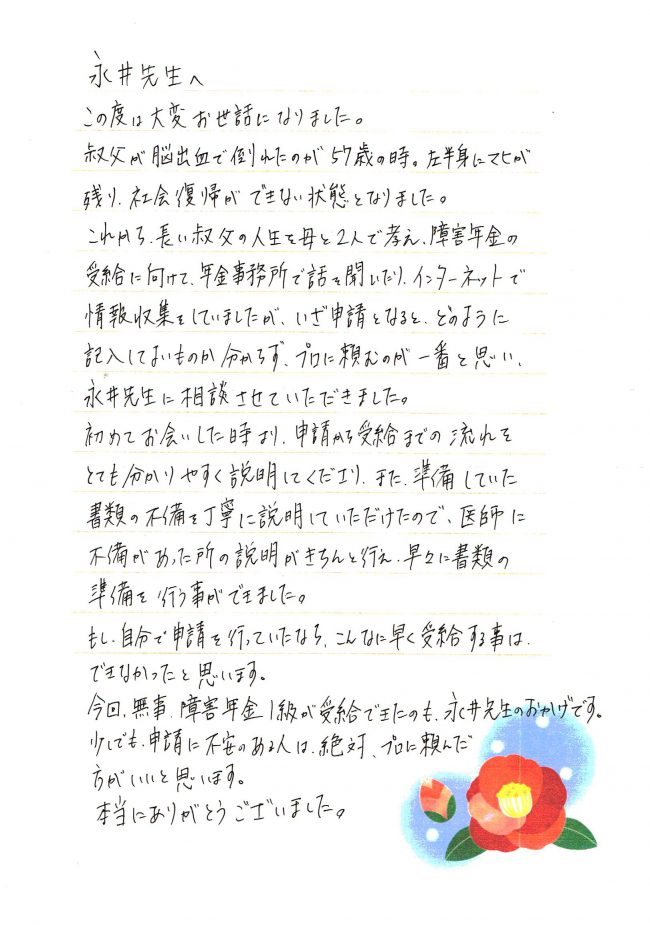 永井先生へ
この度は大変お世話になりました。
叔父が脳出血で倒れたのが57歳の時。左半身にマヒが
残り、社会復帰ができない状態となりました。
これから、長い叔父の人生を母と2人で考え、障害年金の
受給に向けて、年金事務所で話を聞いたり、インターネットで
情報収集をしていましたが、いざ申請となると、どのように
記入してよいものか分からず、プロに頼むのが一番と思い、
永井先生に相談させていただきました。
初めてお会いした時より、申請から受給までの流れを
とても分かりやすく説明してくださり、また、準備していた
書類の不備を丁寧に説明していただけたので、医師に
不備があった所の説明がきちんと行え、早々に書類の
準備を行う事ができました。
もし、自分で申請を行っていたなら、こんなに早く受給する事は、
できなかったと思います。
今回、無事、障害年金1級が受給できたのも、永井先生のおかげです。
少しでも、申請に不安のある人は、絶対、プロに頼んだ
方がいいと思います。
本当にありがとうございました。